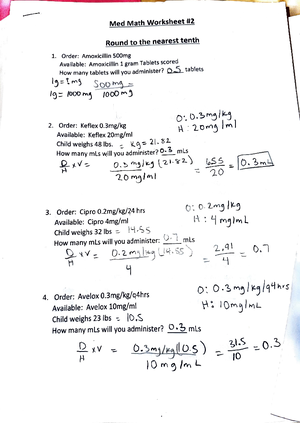 Med Math Worksheet #2
Round to the nearest tenth
1. Order: Amoxicillin 500mg
Available: Amoxicillin 1 gram Tablets scored
How many tablets will you administer? 0.5 tablets
1g = 1mg 500mg =
1g = 1000mg 1000mg
O: 0.3mg/kg
H: 20mg/ml
2. Order: Keflex 0.3mg/kg
Available: Keflex 20mg/ml
Child weighs 48 lbs. = kg = 21.82
How many mLs will you administer? 0.3 mLs
D/H x V = 0.3mg/kg (21.82) / 20mg/ml = 6.55/20 = 0.3mL
3. Order: Cipro 0.2mg/kg/24 hrs
O: 0.2mg/kg
Available: Cipro 4mg/ml
H: 4mg/mL
Child weighs 32 lbs = 14.55
How many mLs will you administer: 0.7 mLs
D/H x V = 0.2mg/kg (14.55) / 4 = 2.91/4 = 0.7
4. Order: Avelox 0.3mg/kg/q4hrs
O: 0.3mg/kg/q4hrs
Available: Avelox 10mg/ml
H: 10mg/mL
Child weighs 23 lbs = 10.5
How many mLs will you administer? 0.3 mLs
D/H x V = 0.3mg/kg (10.5) / 10mg/mL = 31.5/10 = 0.3